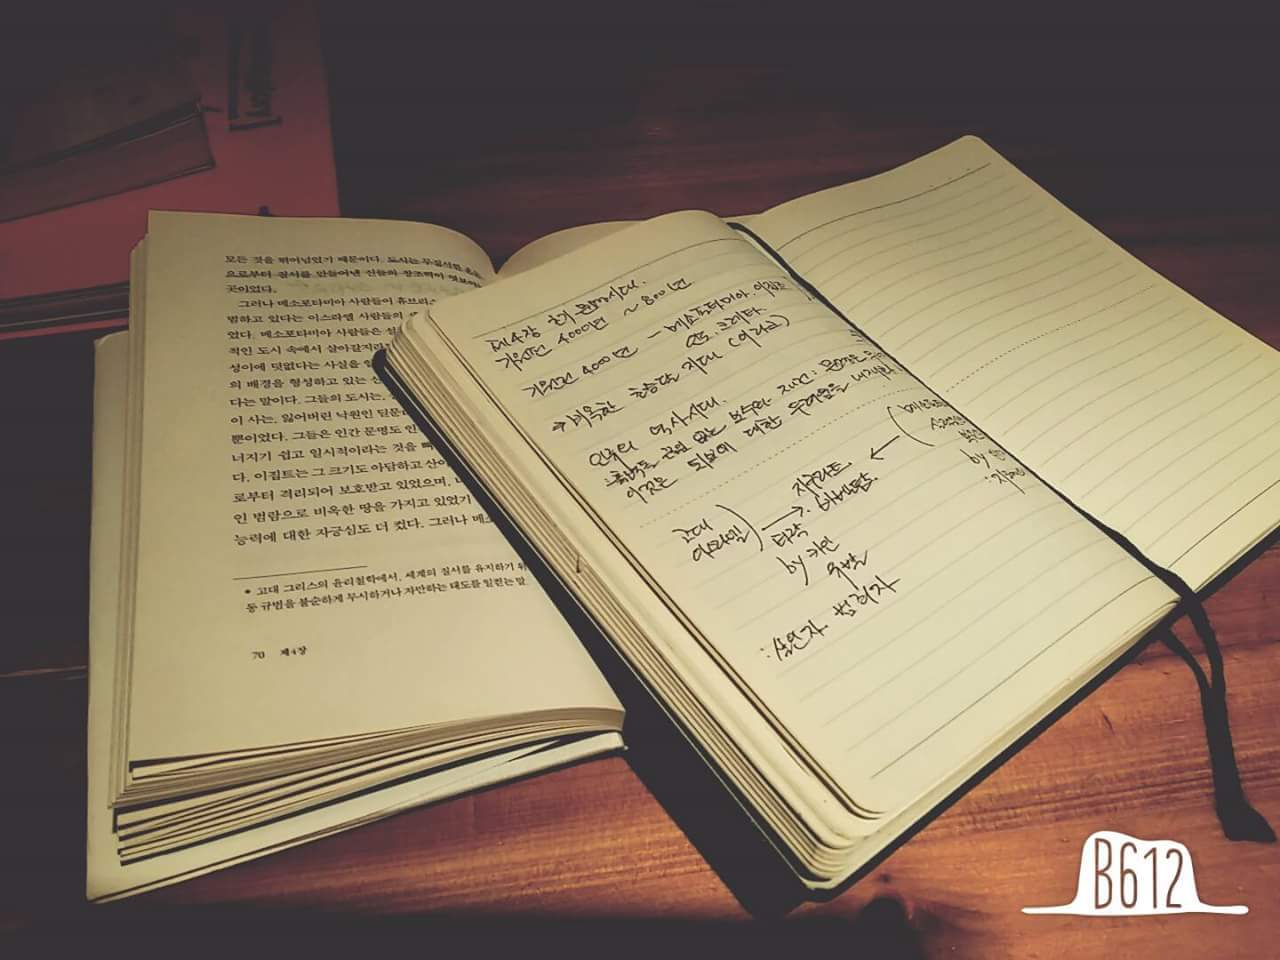 모든 것을 뛰어넘었기 때문이다. 도시는 무질서
으로부터 질서를 만들어낸 신들의 창조력이 엿보
곳이었다.
그러나 메소포타미아 사람들이 휴브리스
범하고 있다는 이스라엘 사람들의
었다. 메소포타미아 사람들은
적인 도시 속에서 살아갈지라
성이에 덧없다는 사실을
의 배경을 형성하고 있는
다는 말이다. 그들의 도시는,
이 사는, 잃어버린 낙원인 딜문
뿐이었다. 그들은 인간 문명도 인
너지기 쉽고 일시적이라는 것을
다. 이집트는 그 크기도 아담하고 산이
로부터 격리되어 보호받고 있었으며,
인 범람으로 비옥한 땅을 가지고 있었기
능력에 대한 자긍심도 더 컸다. 그러나 메소
• 고대 그리스의 윤리철학에서, 세계의 질서를 유지하기 위
동 규범을 불순하게 무시하거나 자만하는 태도를 일컫는 말.
70 제4장
제4장 초기 문명시대.
기원전 4000년 ~ 800년
기원전 4000년 — 메소포타미아. 이집트
인도. 크레타.
→ 비옥한 초승달 지대 (이라크)
인류의 역사시대.
이것은 진보에 대한 두려움을 내재
고대
이스라엘) → 지구라트
바벨탑.
타락
by 카인
: 살인자. 범죄자
B612